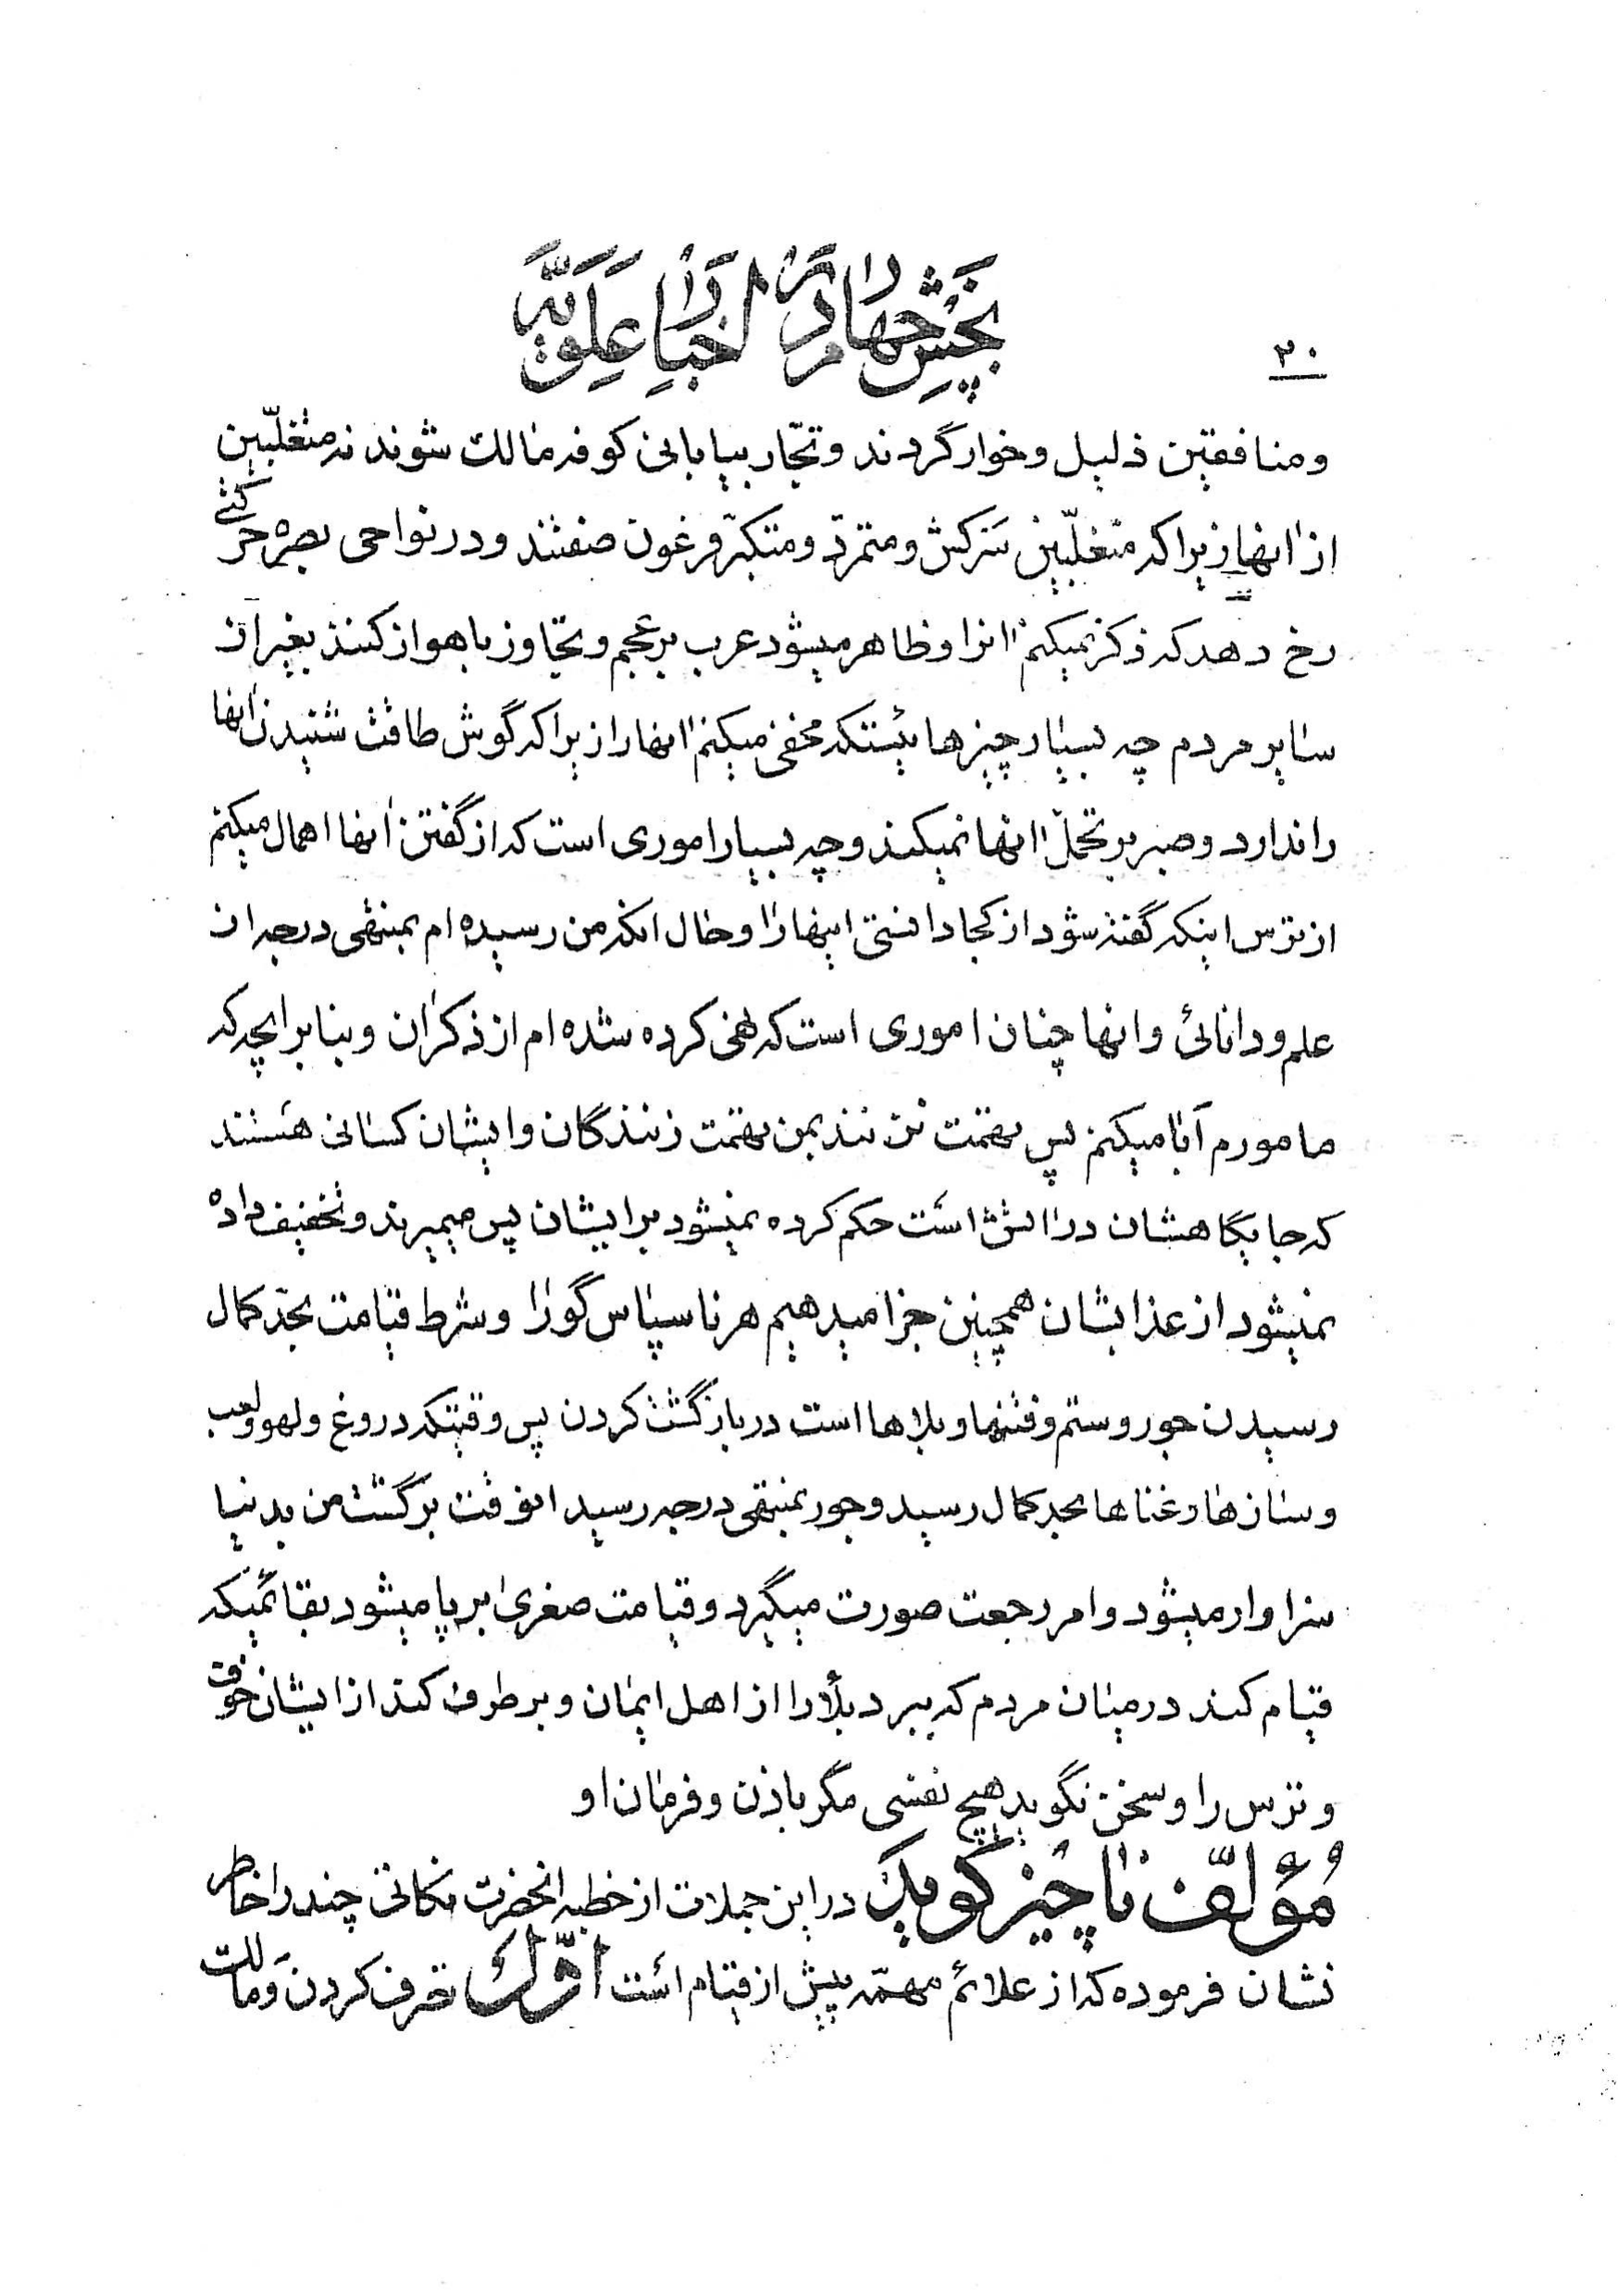 ۲۰
بخش چهارم در اخبار علویه
و منافقین ذلیل و خوار گردند و تجّار بیابانی کوفه مالک شوند نه متغلّبین
از آنها زیرا که متغلّبین سرکش و متمرّد و متکبّر و فرعون صفتند و در نواحی بصره حرکتی
رخ دهد که ذکر نمیکنم آنرا و ظاهر میشود عرب بر عجم و تجاوز باهواز کنند بغیر از
سایر مردم چه بسیار چیزهائیستکه مخفی میکنم آنها را زیرا که گوش طاقت شنیدن آنها
را ندارد و صبر بر تحمّل آنها نمیکند و چه بسیار اموری است که از گفتن آنها اهمال میکنم
از ترس اینکه گفته شود از کجا دانستی اینها را و حال آنکه من رسیده ام بمنتهی درجه از
علم و دانائی و آنها چنان اموری است که نهی کرده شده ام از ذکر آن و بنا بر آنچه که
مامورم آبا میکنم پس تهمت نزنند بمن تهمت زنندگان و ایشان کسانی هستند
که جایگاهشان در آتش است حکم کرده نمیشود بر ایشان پس میمیرند و تخفیف داده
نمیشود از عذابشان همچنین جزا میدهیم هر ناسپاس گو را و شرط قیامت بحدّ کمال
رسیدن جور و ستم و فتنها و بلاها است در بازگشت کردن پس وقتیکه دروغ و لهو و لعب
و سازها و غناها بحد کمال رسید و جور بمنتهی درجه رسید انوقت برگشت من بدنیا
سزاوار میشود و امر رجعت صورت میگیرد و قیامت صغری بر پا میشود بقائمیکه
قیام کند در میان مردم که ببرد بلا را از اهل ایمان و برطرف کند از ایشان خوف
و ترس را و سخن نگوید هیچ نفسی مگر باذن و فرمان او
مؤلّف ناچیز گوید در این جملات از خطبه آنحضرت نکاتی چند را خاطر
نشان فرموده که از علائم مهمّه پیش از قیام است اوّل تصرف کردن و مالک